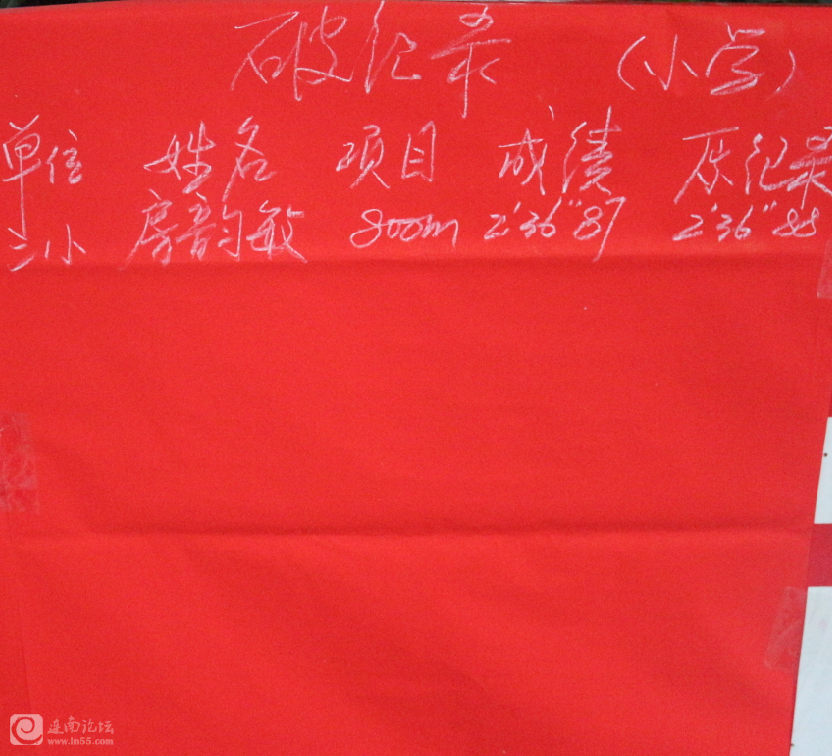 破纪录 (小学)
单位 姓名 项目 成绩 原纪录
三小 房韵敏 800m 2'36"87 2'36"88
连南论坛
www.ln55.com